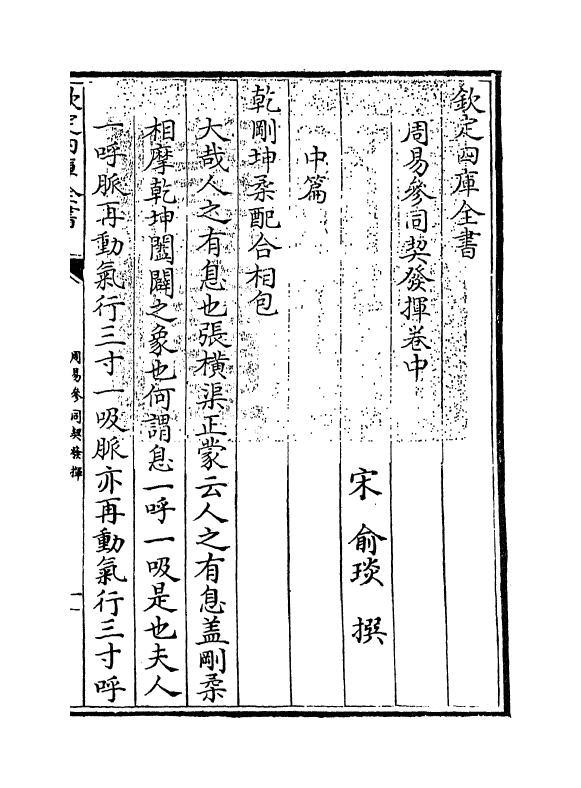 欽定四庫全書
周易參同契發揮卷中
宋 俞琰 撰
中篇
乾剛坤柔配合相包
大哉人之有息也張橫渠正蒙云人之有息盖剛柔
相摩乾坤闔闢之象也何謂息一呼一吸是也夫人
一呼脈再動氣行三寸一吸脈亦再動氣行三寸呼
欽定四庫全書
周易參同契發揮
一